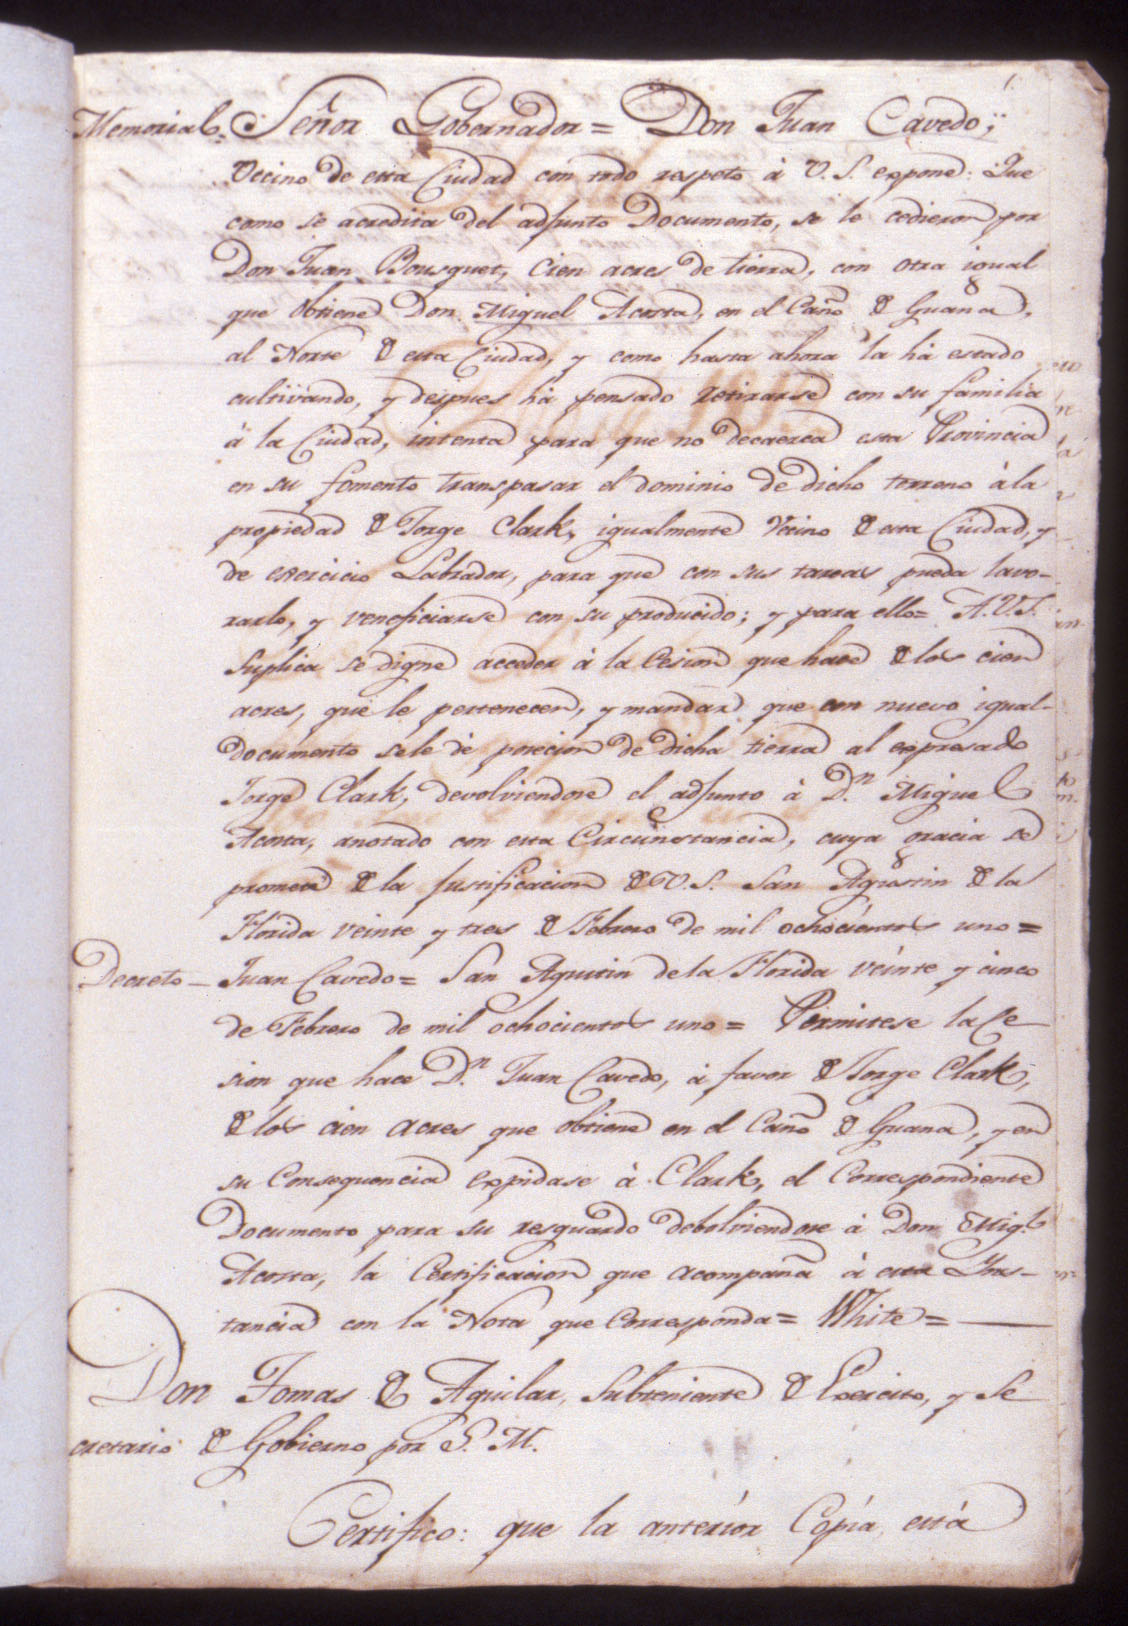 1.
Memorial = Señor Gobernador = Don Juan Cavedo,
Vecino de esta Ciudad con todo respeto à V. S. expone: Que
como se acredita del adjunto Documento, se le cedieron por
Don Juan Bousquet, Cien acres de tierra, con otra igual
que obtiene Don Miguel Acosta, en el Caño de Guana,
al Norte de esta Ciudad, y como hasta ahora la há estado
cultivando, y despues há pensado retirarse con su familia
à la Ciudad, intenta para que no decaerca esta Provincia
en su fomento transpasar el dominio de dicho terreno à la
propiedad de Jorge Clark, igualmente Vecino de esta Ciudad, y
de exercicio Labrador, para que con sus tareas pueda lavo-
rarlo, y veneficiarse con su producido; y para ello = A. V. S.
Suplica se digne acceder à la Cesion que hace de los cien
acres, que le pertenecen, y mandar que con nuevo igual
documento sele dè posecion de dicha tierra al expresado
Jorge Clark, devolviendose el adjunto à D.n Miguel
Acosta, anotado con esta Circunstancia, cuya gracia se
promete de la Justificacion de V. S. San Agustin de la
Florida veinte y tres de Febrero de mil ochocientos uno =
Decreto – Juan Cavedo = San Agustin de la Florida veinte y cinco
de Febrero de mil ochocientos uno = Permitese la Ce-
sion que hace D.n Juan Cavedo, à favor de Jorge Clark,
de los cien acres que obtiene en el Caño de Guana, y en
su Consequencia expidase à Clark, el Correspondiente
Documento para su resguardo debolviendose à Don Mig.l
Acosta, la Certificacion que acompaña à esta Yns-
tancia con la Nota que Corresponda = White =
Don Tomas de Aguilar, Subteniente de Exercito, y Se
cretario de Gobierno por S. M.
Certifico: que la anterior Copía, está